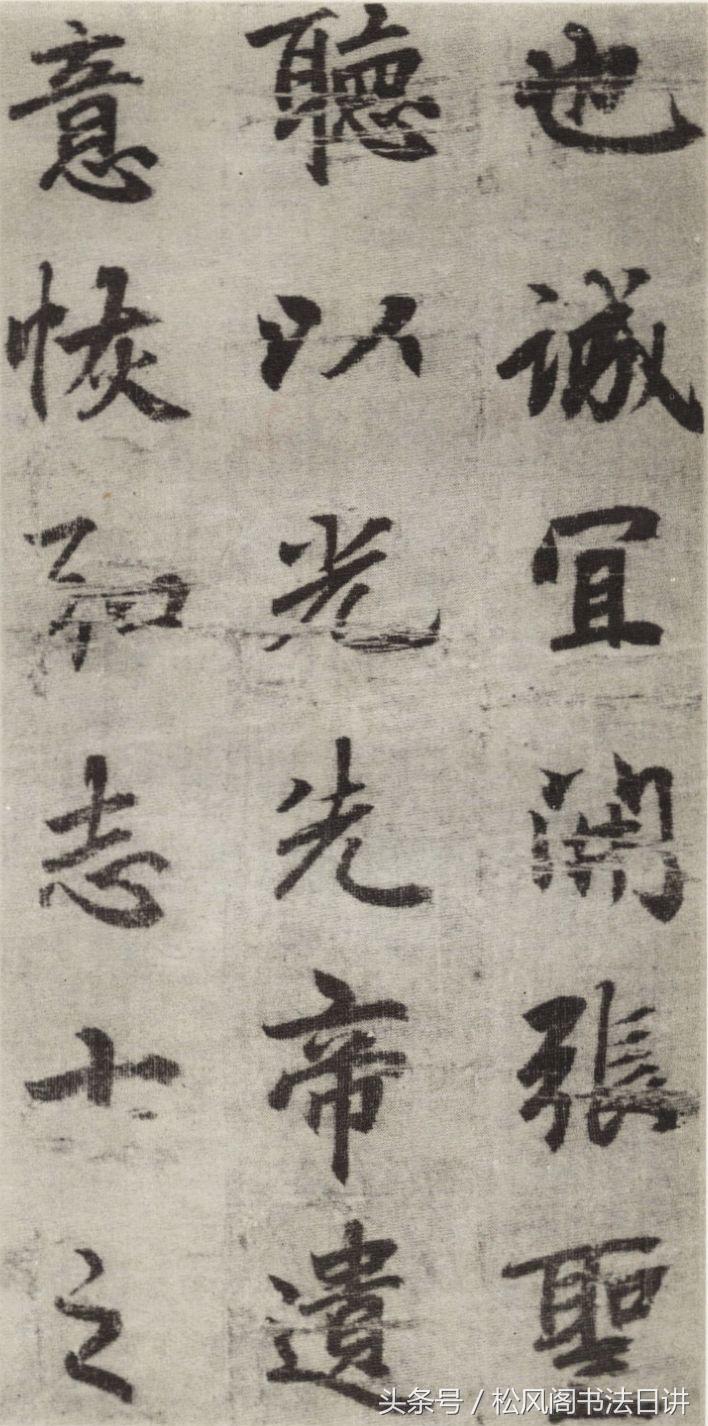 也誠宜開張聖
聽以光先帝遺
意恢弘志士之
头条号 / 松风阁书法日讲